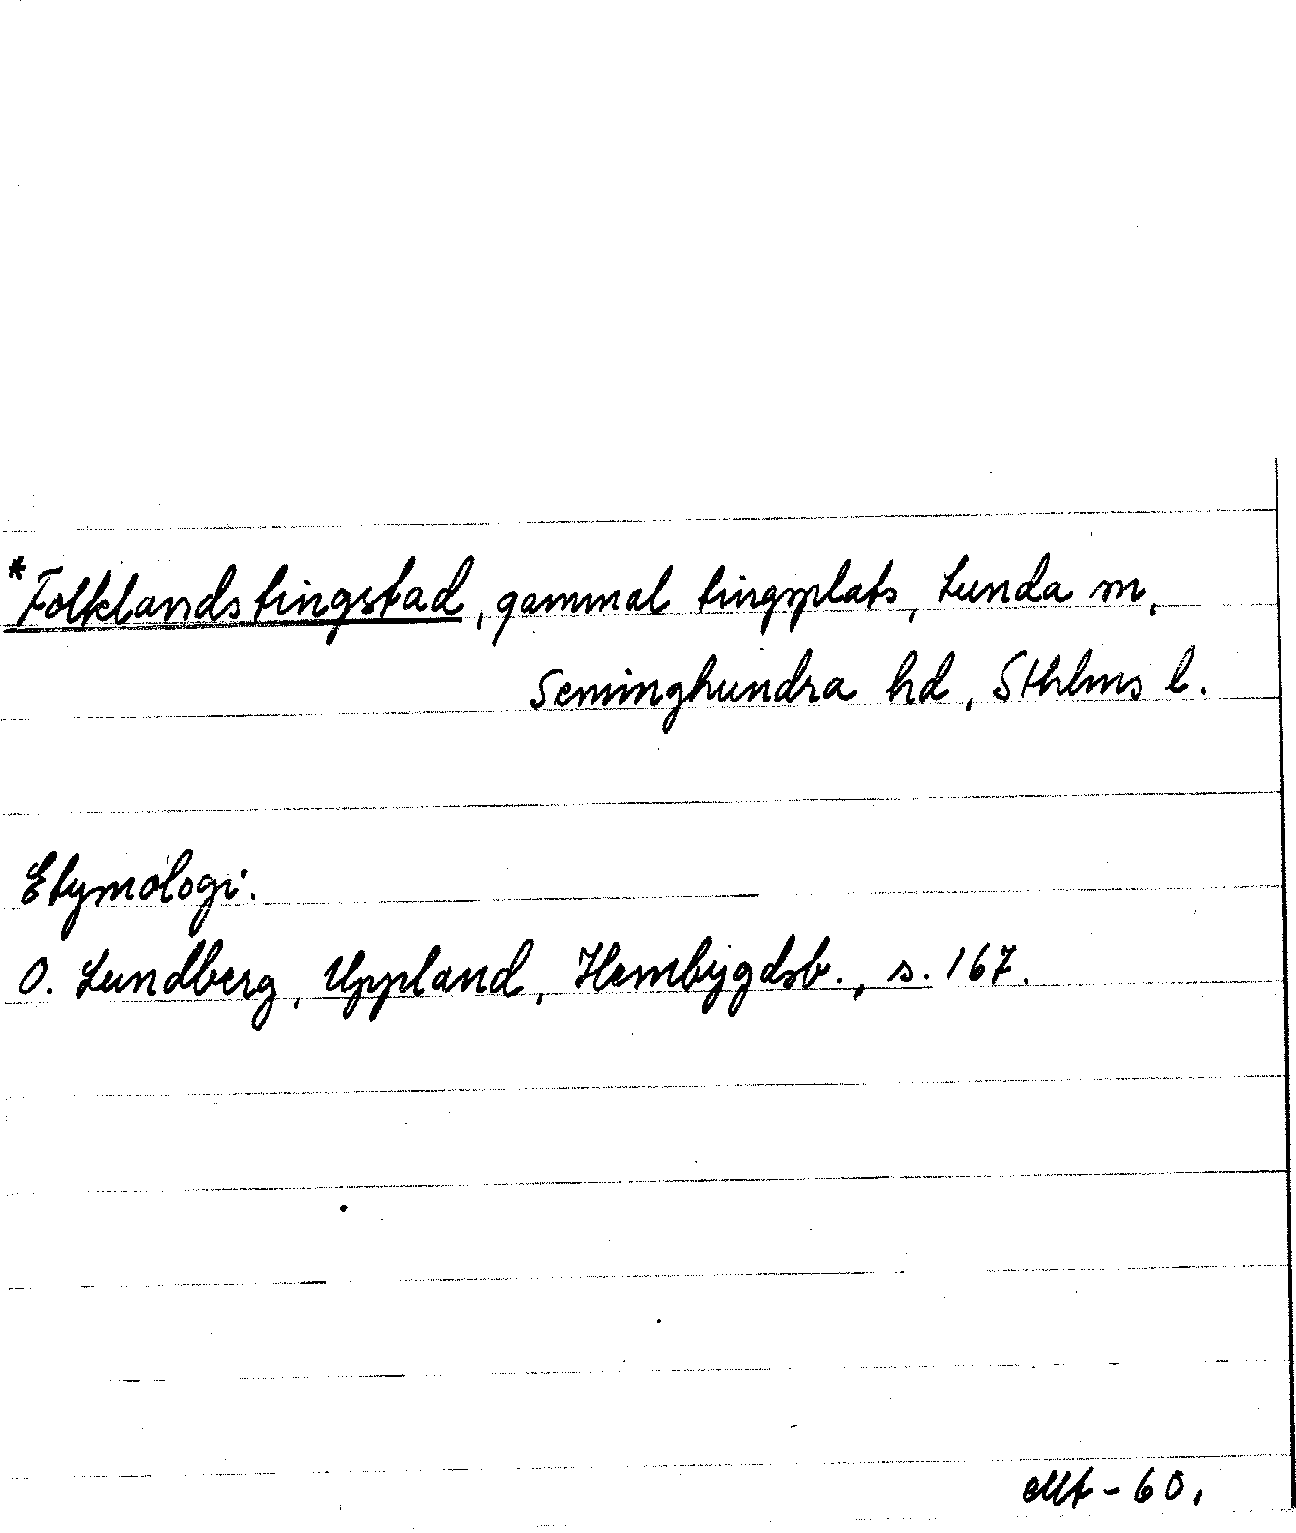 *Folklandstingstad, gammal tingsplats, Lunda sn,
Seminghundra hd, Sthlms l.
Etymologi.
O. Lundberg, Uppland, Hembygdsb., s. 167.
-60.